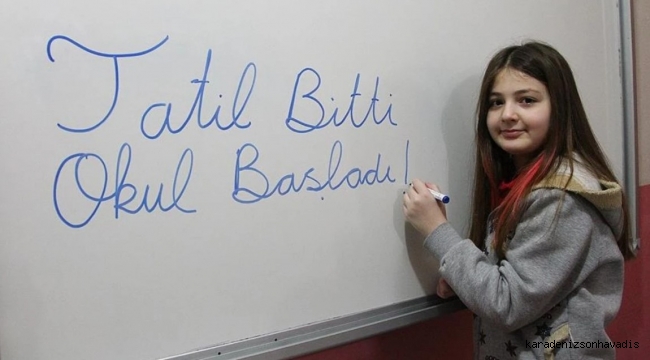 Tatil Bitti
Okul Başladı!
karadenizsonhavadis